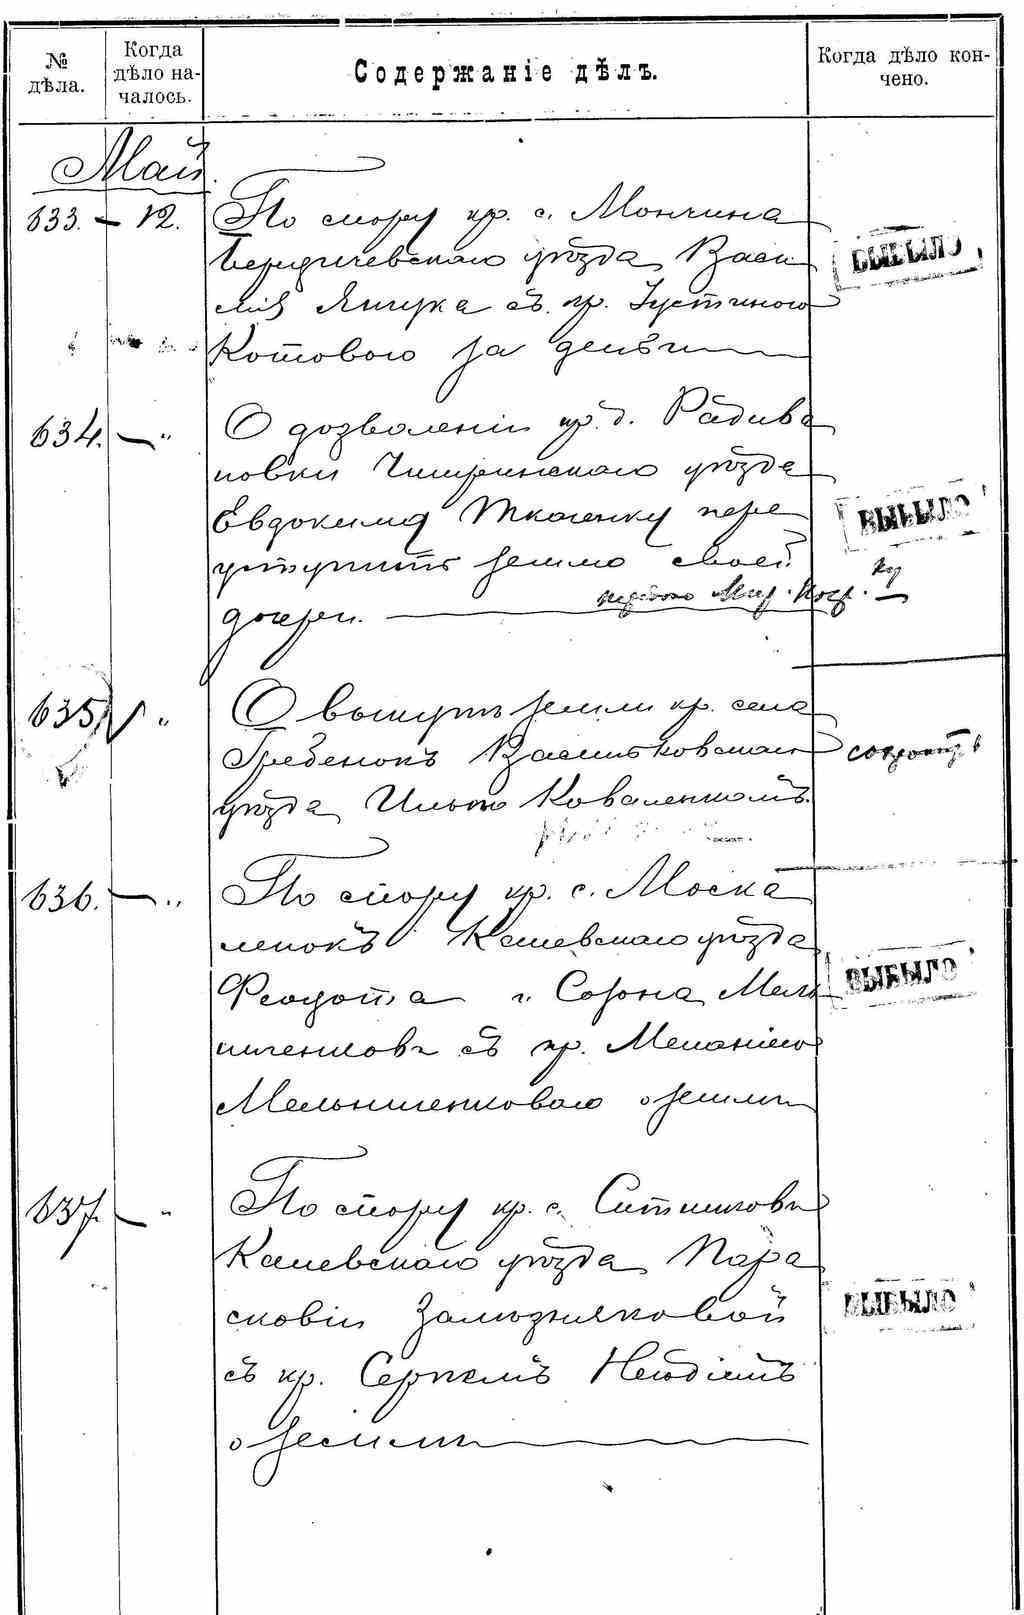 № дѣла.
Когда дѣло началось.
Содержаніе дѣлъ.
Когда дѣло кончено.
Май.
633. — 12. По спору кр. с. Мончина
Бердичевскаго уѣзда Васи
лія Яицука съ кр. Іустиною
Котовою за деньги
ВЫБЫЛО
634. — " О дозволеніи кр. д. Радива
новки Чигиринскаго уѣзда
Евдокиму Ткаченку пере
уступить землю своей
дочери. Мир. Поср.
ВЫБЫЛО
635. " О выкупѣ земли кр. села
Гребенокъ Васильковскаго
уѣзда Ильею Коваленкомъ.
636. — " По спору кр. с. Моска
ленокъ Каневскаго уѣзда
Феодота и Созона Мель
ниченковъ съ кр. Меланіею
Мельниченковою о земли
ВЫБЫЛО
637. — " По спору кр. с. Ситниковъ
Каневскаго уѣзда Пара
сковіи Зализняковой
съ кр. Сергѣемъ
о земли
ВЫБЫЛО